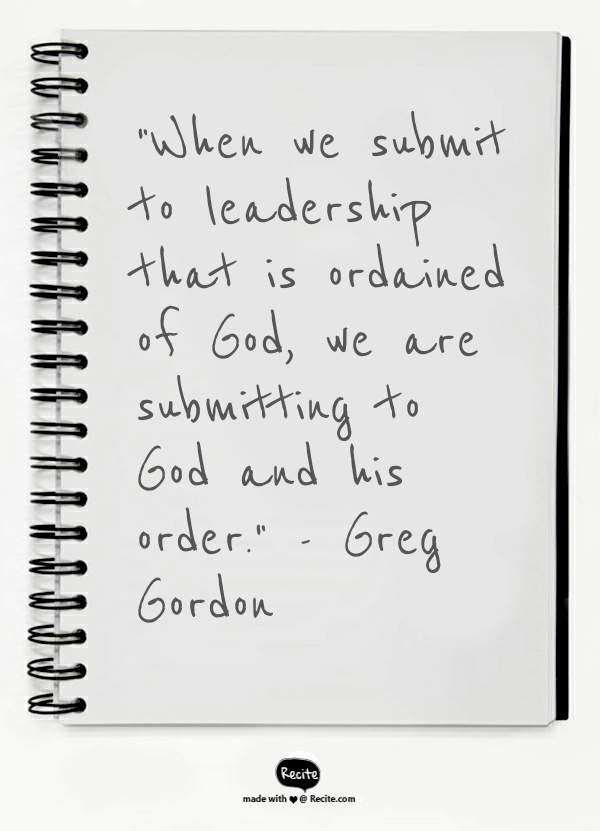 "When we submit
to leadership
that is ordained
of God, we are
submitting to
God and his
order." - Greg
Gordon
Recite
made with ♥ @ Recite.com